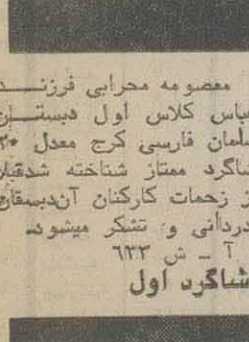 معصومه محرابی فرزنـــد
عباس کلاس اول دبستـــان
سلمان فارسی کرج معدل ۲۰
شاگرد ممتاز شناخته شد
از زحمات کارکنان آن
قدردانی و تشکر میشود.
آ ــ ش ٦٣٣
شاگرد اول